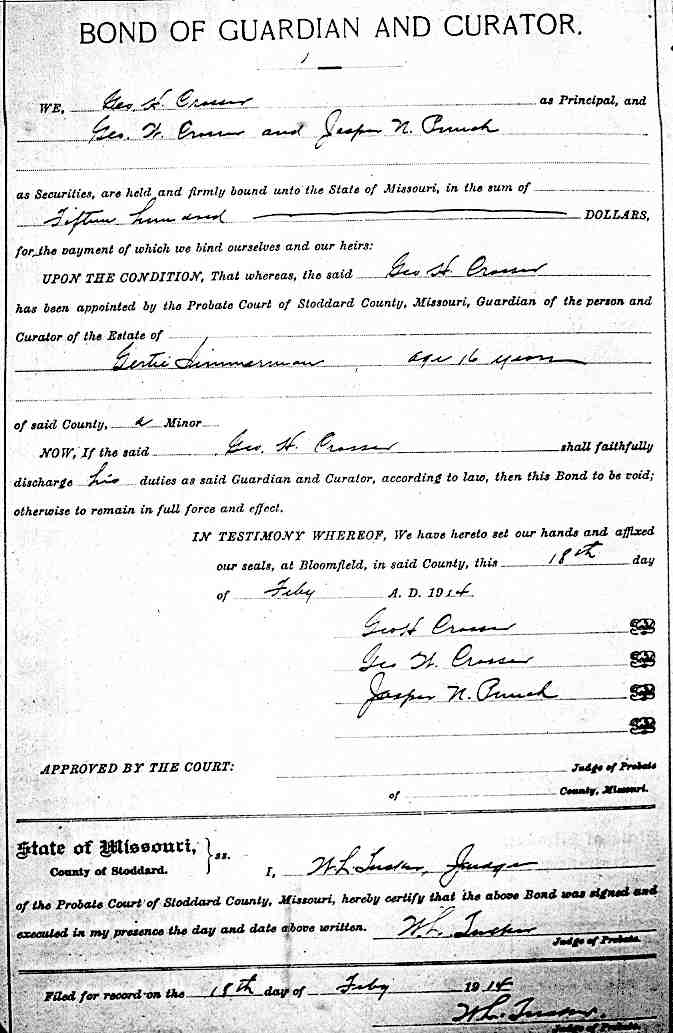 BOND OF GUARDIAN AND CURATOR.
WE, Geo. H. Crosser as Principal, and
Geo. W. Crosser and Jasper N. Punch
as Securities, are held and firmly bound unto the State of Missouri, in the sum of
Fifteen hundred DOLLARS,
for the payment of which we bind ourselves and our heirs:
UPON THE CONDITION, That whereas, the said Geo H. Crosser
has been appointed by the Probate Court of Stoddard County, Missouri, Guardian of the person and
Curator of the Estate of
Gertie Zimmerman age 16 years
of said County, a Minor
NOW, If the said Geo. H. Crosser shall faithfully
discharge his duties as said Guardian and Curator, according to law, then this Bond to be void;
otherwise to remain in full force and effect.
IN TESTIMONY WHEREOF, We have hereto set our hands and affixed
our seals, at Bloomfield, in said County, this 18th day
of Feby A. D. 1914.
Geo H Crosser
Geo W. Crosser
Jasper N. Punch
APPROVED BY THE COURT: Judge of Probate
of County, Missouri.
State of Missouri, } ss.
County of Stoddard.
I, W L. Tucker, Judge
of the Probate Court of Stoddard County, Missouri, hereby certify that the above Bond was signed and
executed in my presence the day and date above written. W L. Tucker
Judge of Probate.
Filed for record on the 18th day of Feby 1914
W L. Tucker.
Judge of Probate.